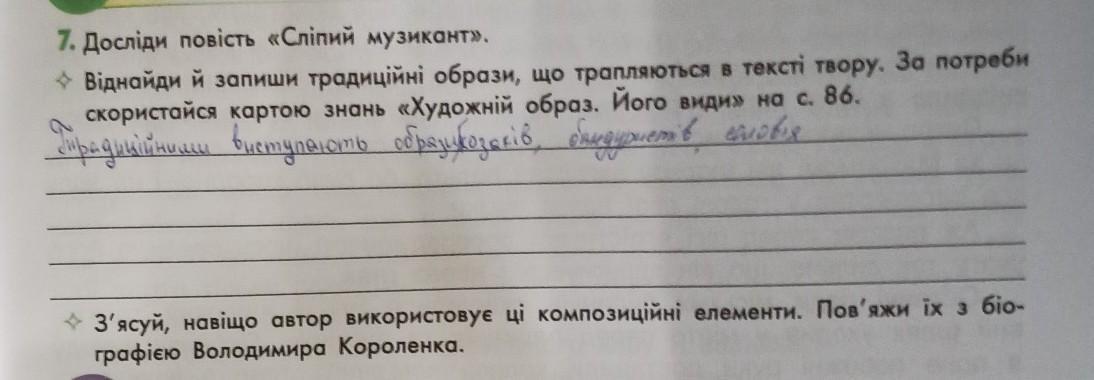 7. Досліди повість «Сліпий музикант».
✧ Віднайди й запиши традиційні образи, що трапляються в тексті твору. За потреби
скористайся картою знань «Художній образ. Його види» на с. 86.
Традиційними виступають образи козаків, бандуристів, солов'я
✧ З'ясуй, навіщо автор використовує ці композиційні елементи. Пов'яжи їх з біо-
графією Володимира Короленка.